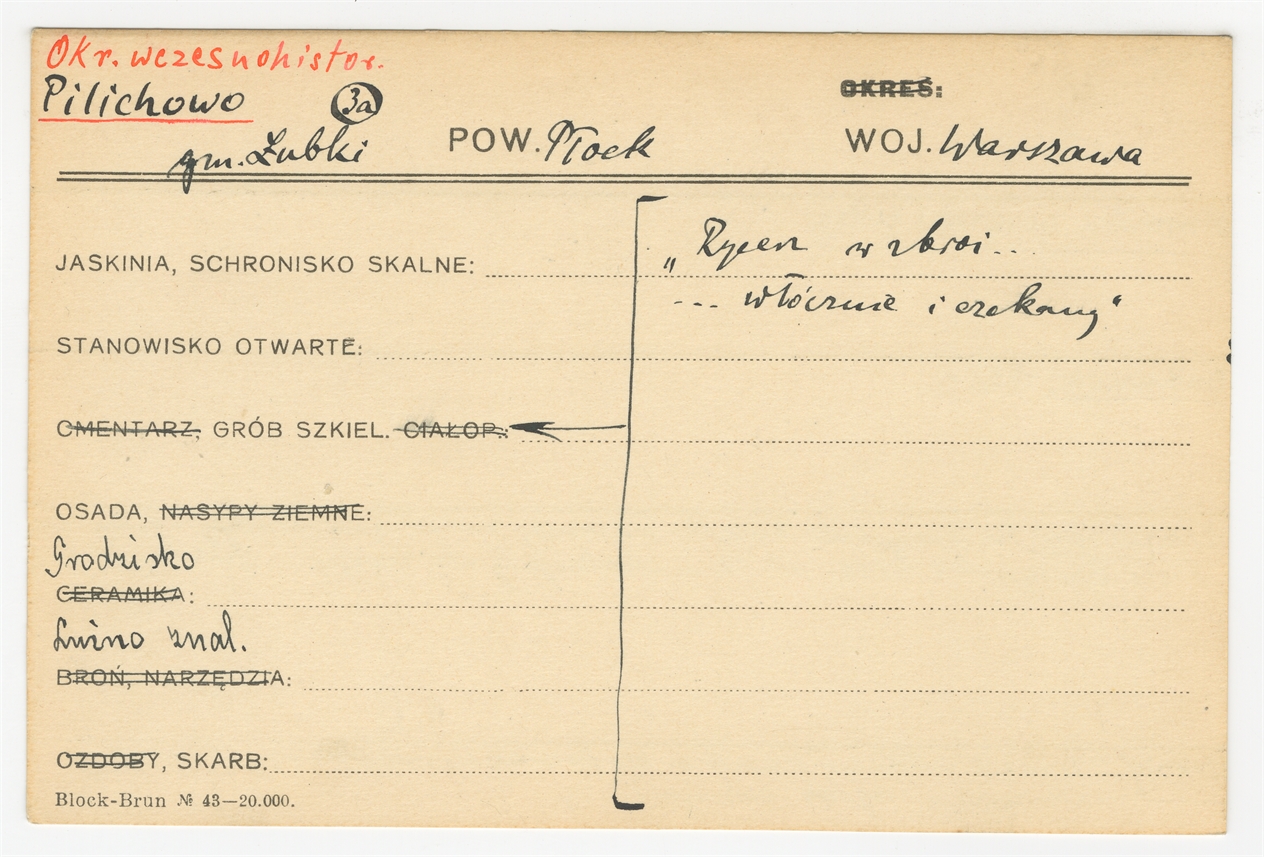 Okr. wczesnohistor.
Pilichowo 3a
OKRES:
gm. Łubki POW. Płock WOJ. Warszawa
JASKINIA, SCHRONISKO SKALNE:
„Rycerz w zbroi..
... włócznie i czekany“
STANOWISKO OTWARTE:
CMENTARZ, GRÓB SZKIEL. CIAŁOP.:
OSADA, NASYPY ZIEMNE:
Grodzisko
CERAMIKA:
Luźno znal.
BROŃ, NARZĘDZIA:
OZDOBY, SKARB:
Block-Brun № 43—20.000.